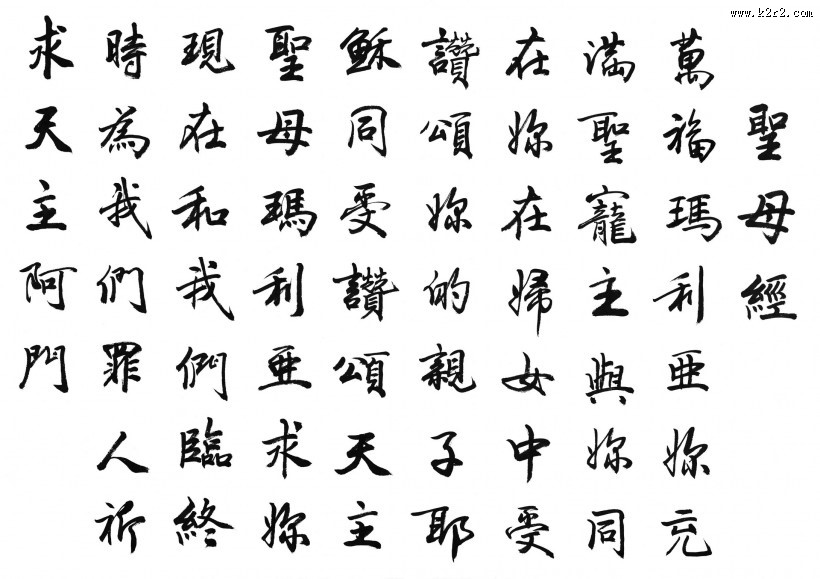 www.k2r2.com
聖母經
萬福瑪利亞妳充
滿聖寵主與妳同
在妳在婦女中受
讚頌妳的親子耶
穌同受讚頌天主
聖母瑪利亞求妳
現在和我們臨終
時為我們罪人祈
求天主阿門